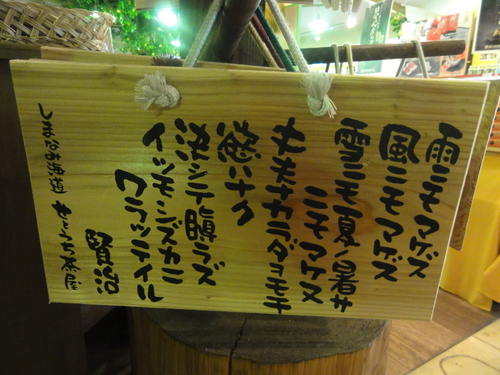 雨ニモマケズ
風ニモマケズ
雪ニモ夏ノ暑サ
ニモマケヌ
丈夫ナカラダヲモチ
慾ハナク
決シテ瞋ラズ
イツモシズカニ
ワラッテイル
賢治
しまなみ海道 せとうち茶屋